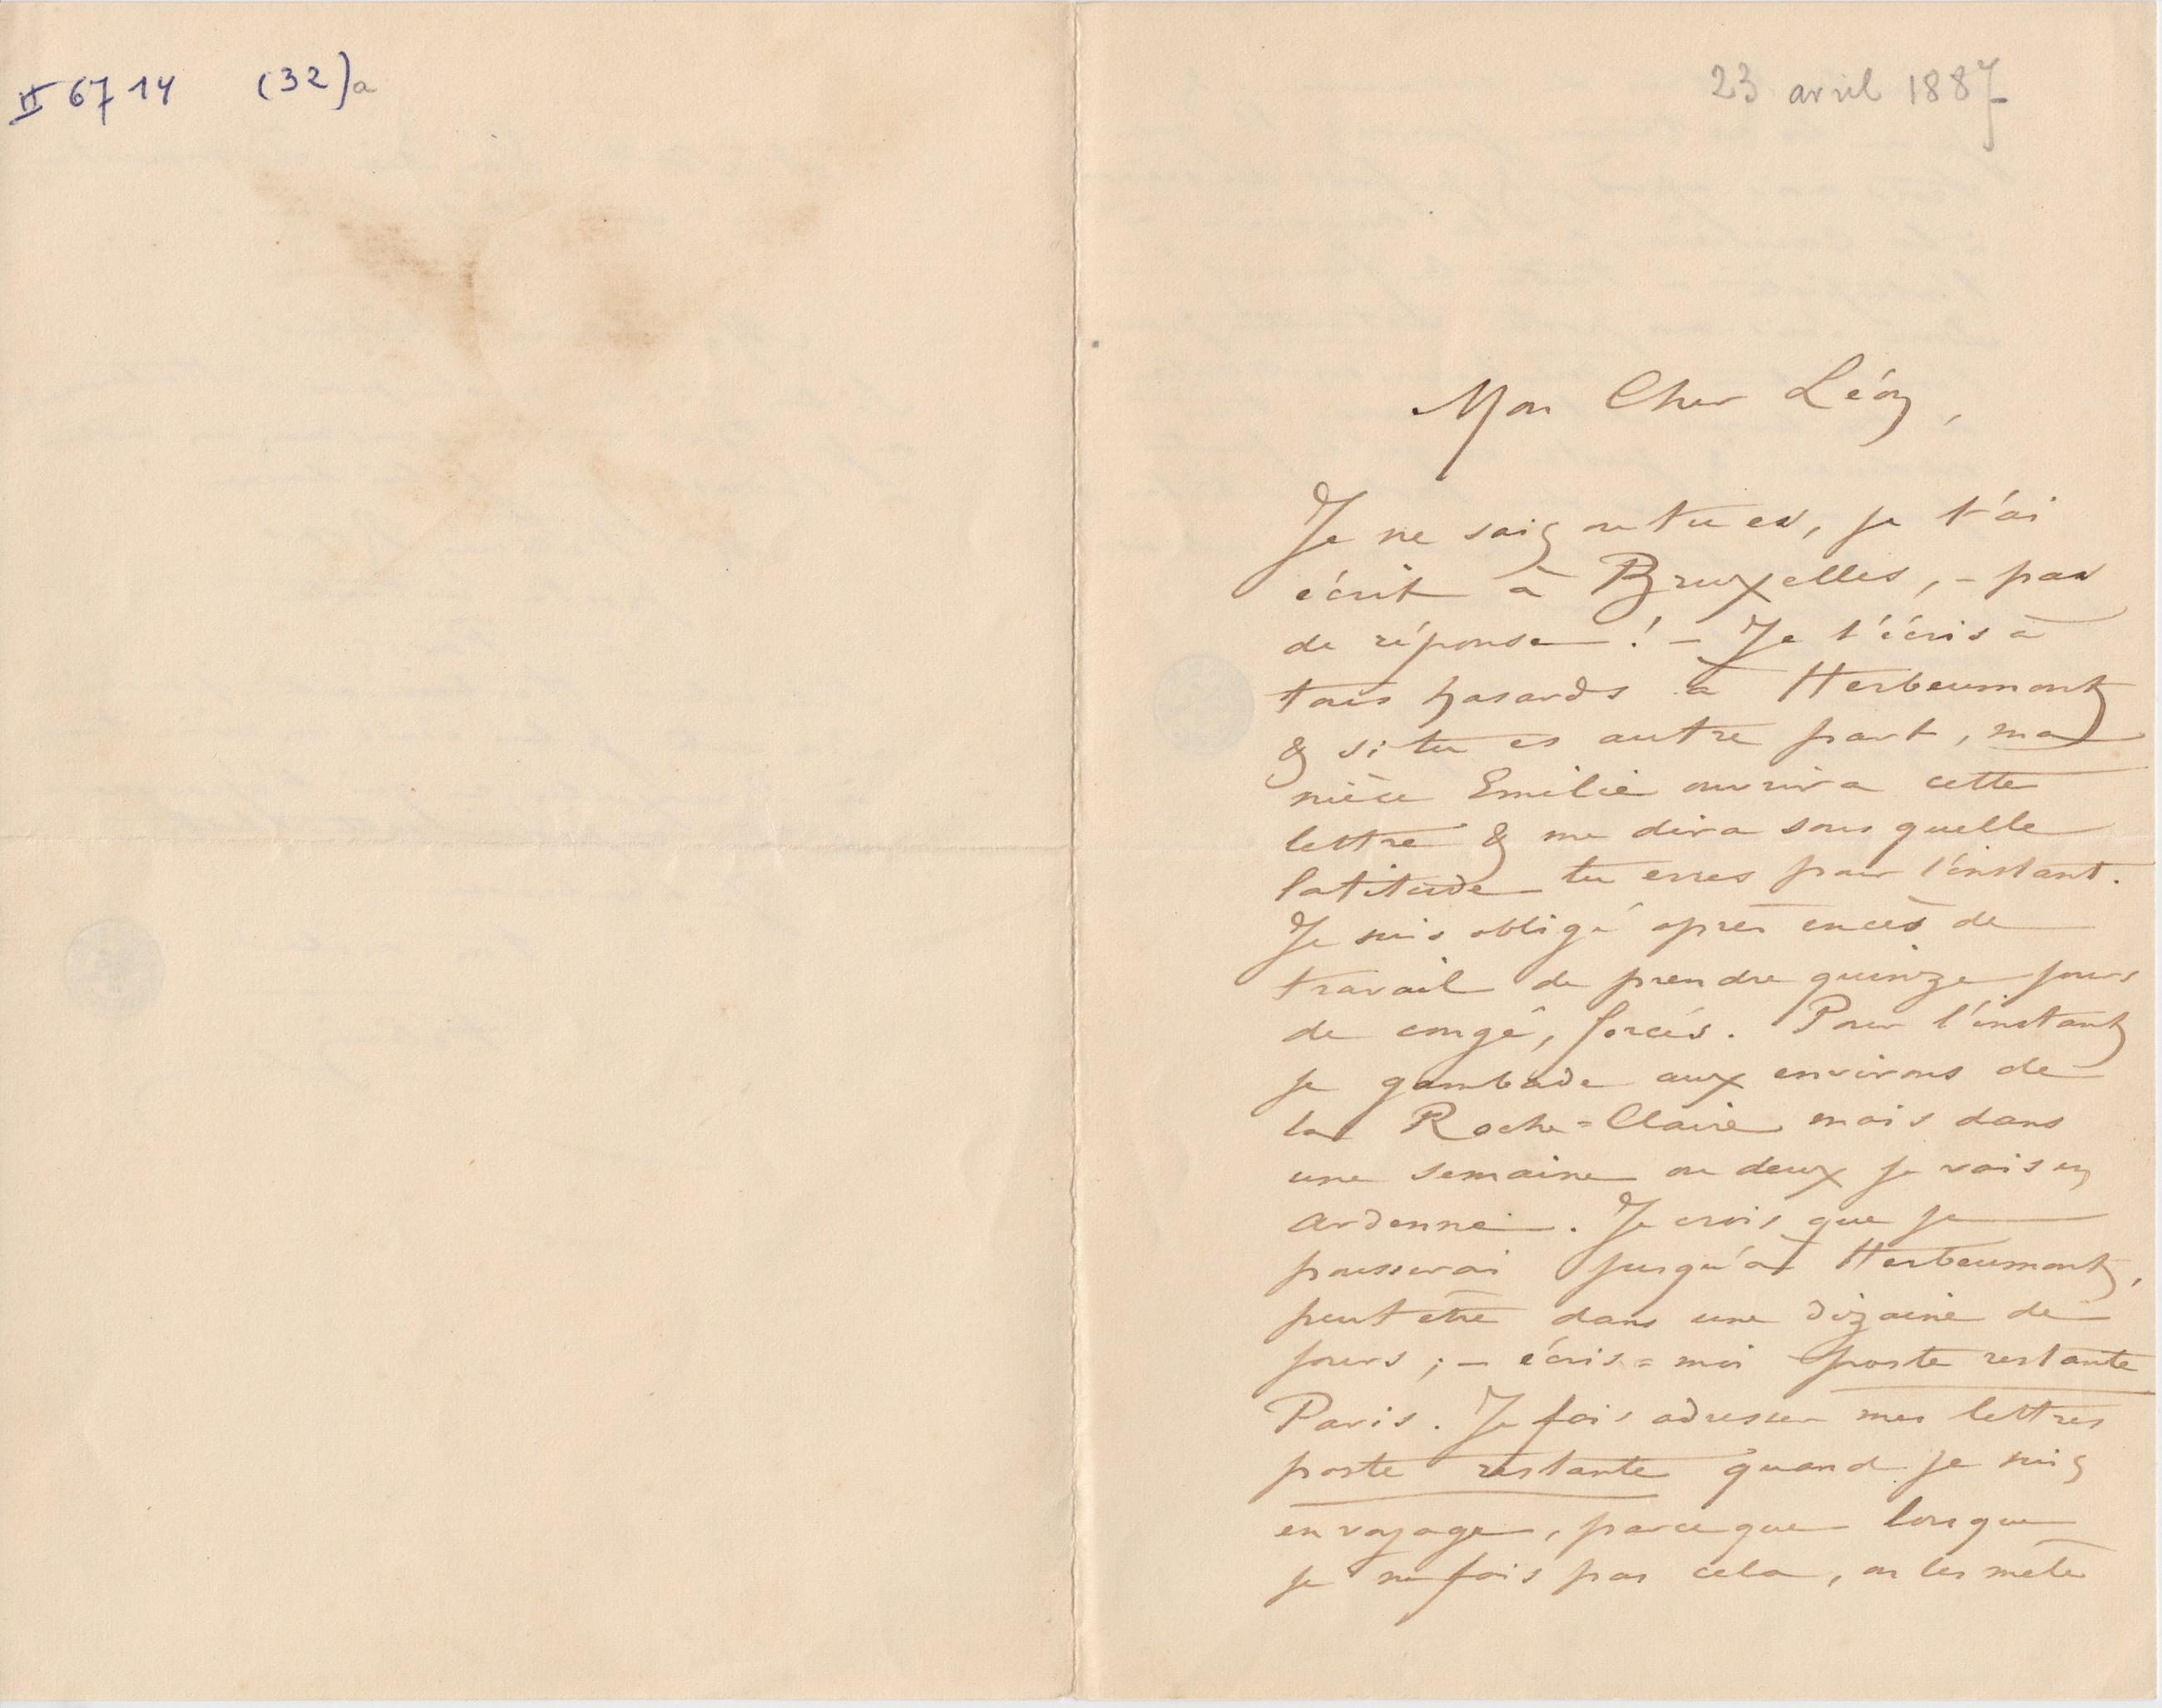 II 6714 (32)a
23 avril 1887
Mon Cher Léon,
Je ne sais ou tu es, je t'ai
écrit à Bruxelles, – pas
de réponse ! – Je t'écris à
tous hasards à Herbeumont
& si tu es autre part, ma
nièce Emilie ouvrira cette
lettre & me dira sous quelle
latitude tu erres pour l'instant.
Je suis obligé après excès de
travail de prendre quinze jours
de congé, forcés. Pour l'instant
je gambade aux environs de
la Roche=Claire mais dans
une semaine ou deux je vais en
Ardenne. Je crois que je
pousserai jusqu'à Herbeumont,
peut être dans une dizaine de
jours ; – écris=moi poste restante
Paris. Je fais adresser mes lettres
poste restante quand je suis
en voyage, parceque lorsque
je ne fais pas cela, on les mêle